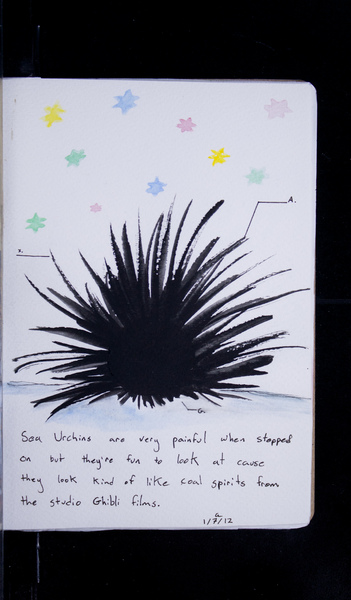 A.
x.
G.
Sea Urchins are very painful when stepped
on but they're fun to look at cause
they look kind of like coal spirits from
the studio Ghibli films.
a
1/7/12